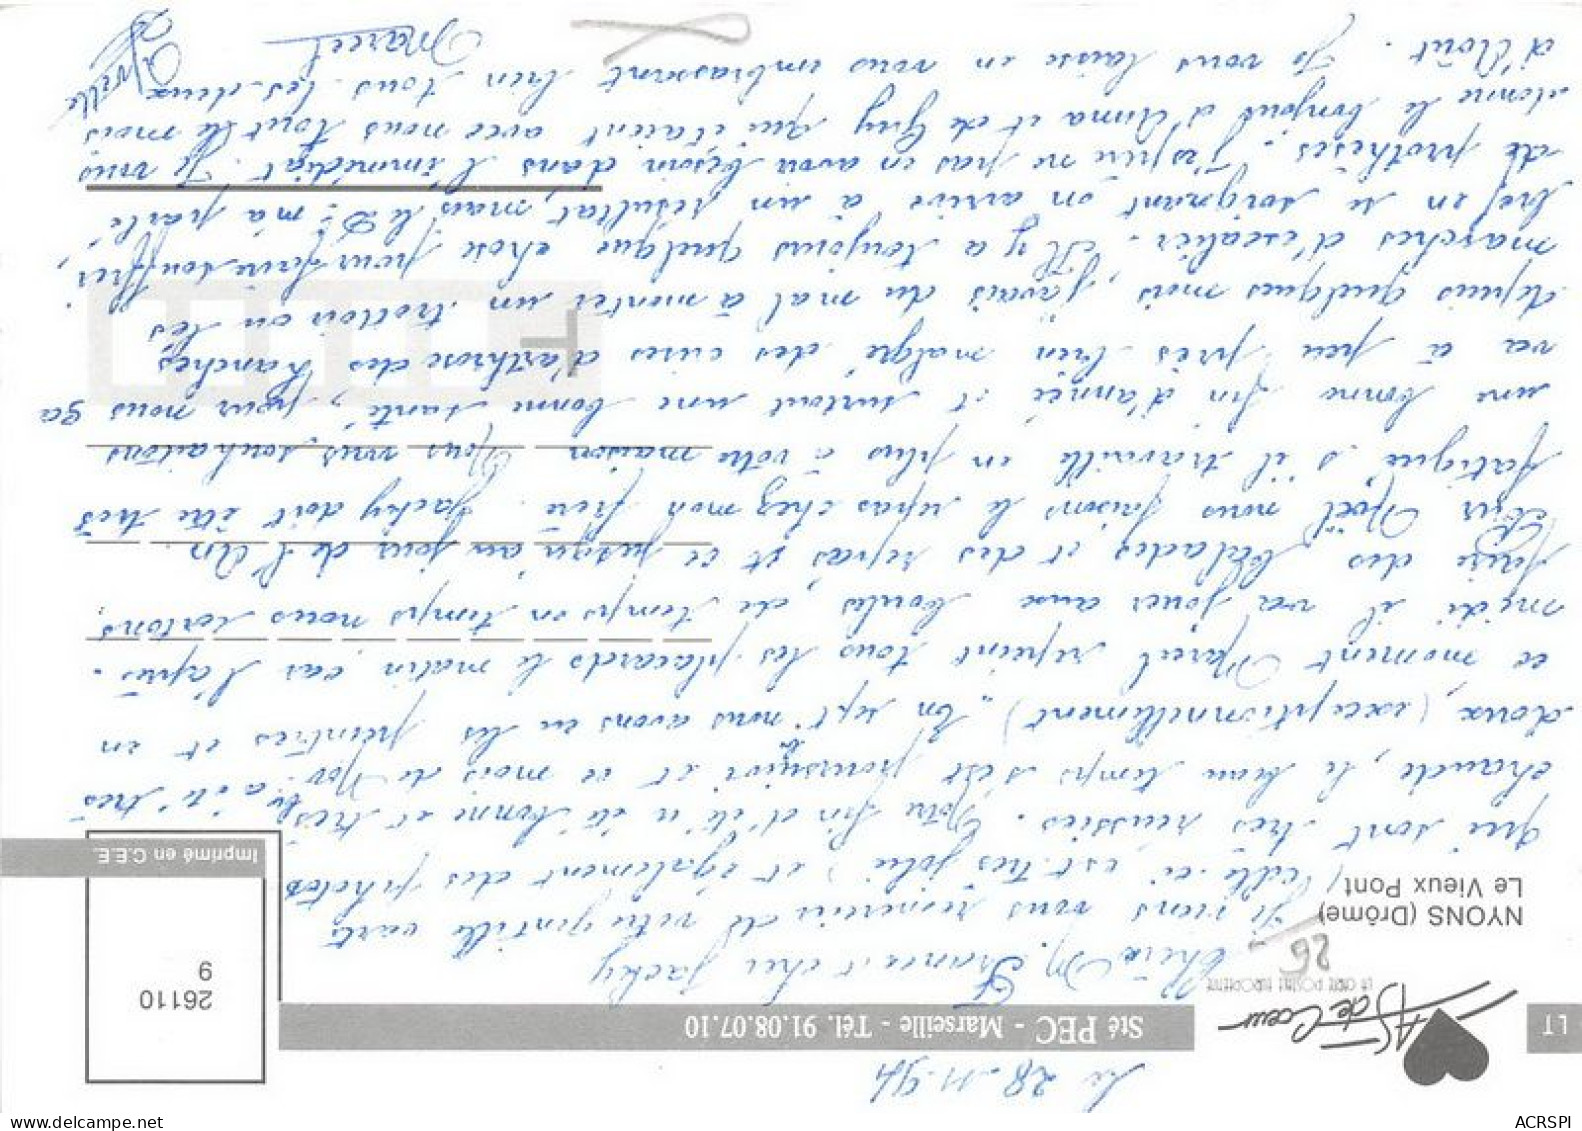 Le 28.11.94
LT
AS de Cœur
LA CARTE POSTALE EUROPEENNE
Sté PEC - Marseille - Tél. 91.08.07.10
26110
9
Imprimé en C.E.E.
NYONS (Drôme)
Le Vieux Pont
26
Chère M. France et cher Jacky
Je viens vous remercier de votre gentille carte
(celle-ci est très jolie) et également des photos
qui sont très réussies. Notre fin d'été a été bonne et très
chaude, le beau temps s'est poursuivi et ce mois de Nov. a été très
doux, (exceptionnellement). En sept nous avons eu les peintres et en
ce moment Marcel repeint tous les placards le matin, car l'après-
midi il va jouer aux boules, de temps en temps nous sortons
faire des balades et des repas et ce jusqu'au jour de l'An.
Pour Noël nous faisons le repas chez mon frère. Jacky doit être très
fatigué s'il travaille en plus à votre maison. Nous vous souhaitons
une bonne fin d'année et surtout une bonne santé, pour nous ça
va à peu près bien malgré des crises d'arthrose des hanches
depuis quelques mois, j'avais du mal à monter un trottoir ou les
marches d'escalier. Il y a toujours quelque chose pour faire souffrir,
bref en se soignant on arrive à un résultat, mais le Dr m'a parlé
de prothèses. J'espère ne pas en avoir besoin dans l'immédiat. Je vous
donne le bonjour d'Anna et de Guy qui étaient avec nous tout le mois
d'Août. Je vous laisse en vous embrassant bien tous les deux
Marcel
ACRSPI